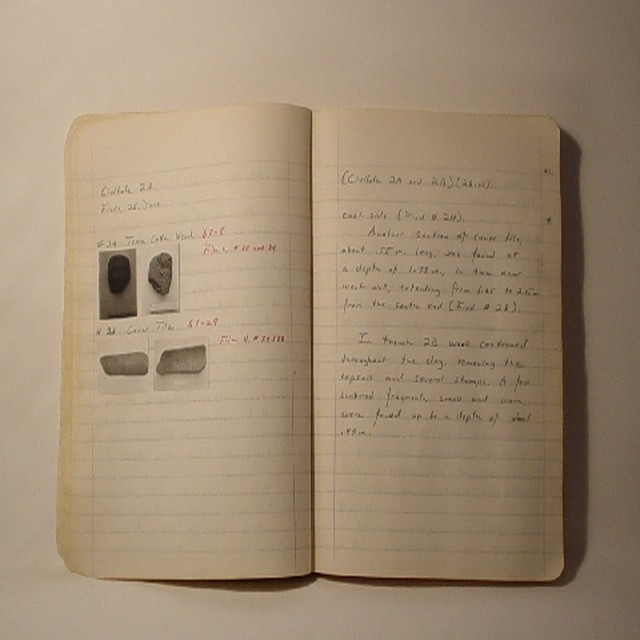 Civitate 2A
Finds 26 June
#2A Terra Cotta Head 67-8
Film
#2B Cover Tile 67-29
Film
(Civitate 2A and 2B)
each side (Find # 2A).
Another section of cover tile,
about .55 m. long, was found at
a depth of 1.38 m. in the near
west cut, extending from to
from the south end (Find # 2B).
In trench 2B work continued
throughout the day, removing the
topsoil and several stumps. A few
scattered fragments, small and worn,
were found up to a depth of about
m.